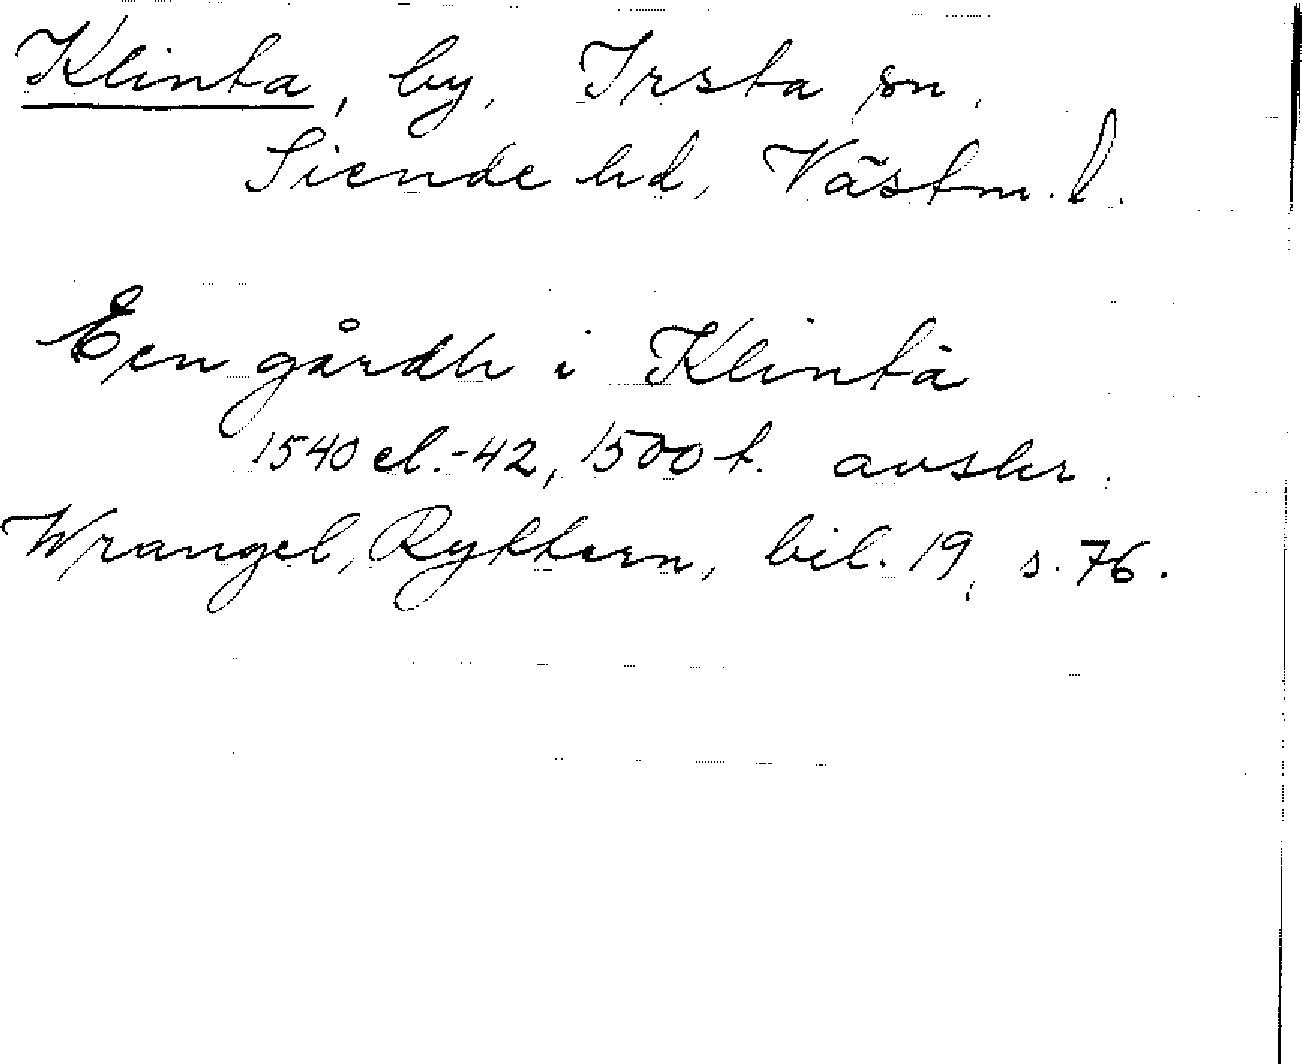 Klinta, by, Irsta sn,
Siende hd, Västm. l.
Een gårdh i Klintä
1540 el. -42, 1500 t. avskr.
Wrangel, Ryttern, bil. 19, s. 76.